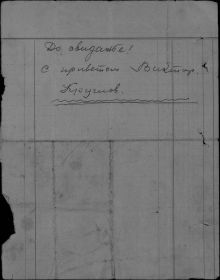 До свиданье!
С приветом Виктор
Круглов.